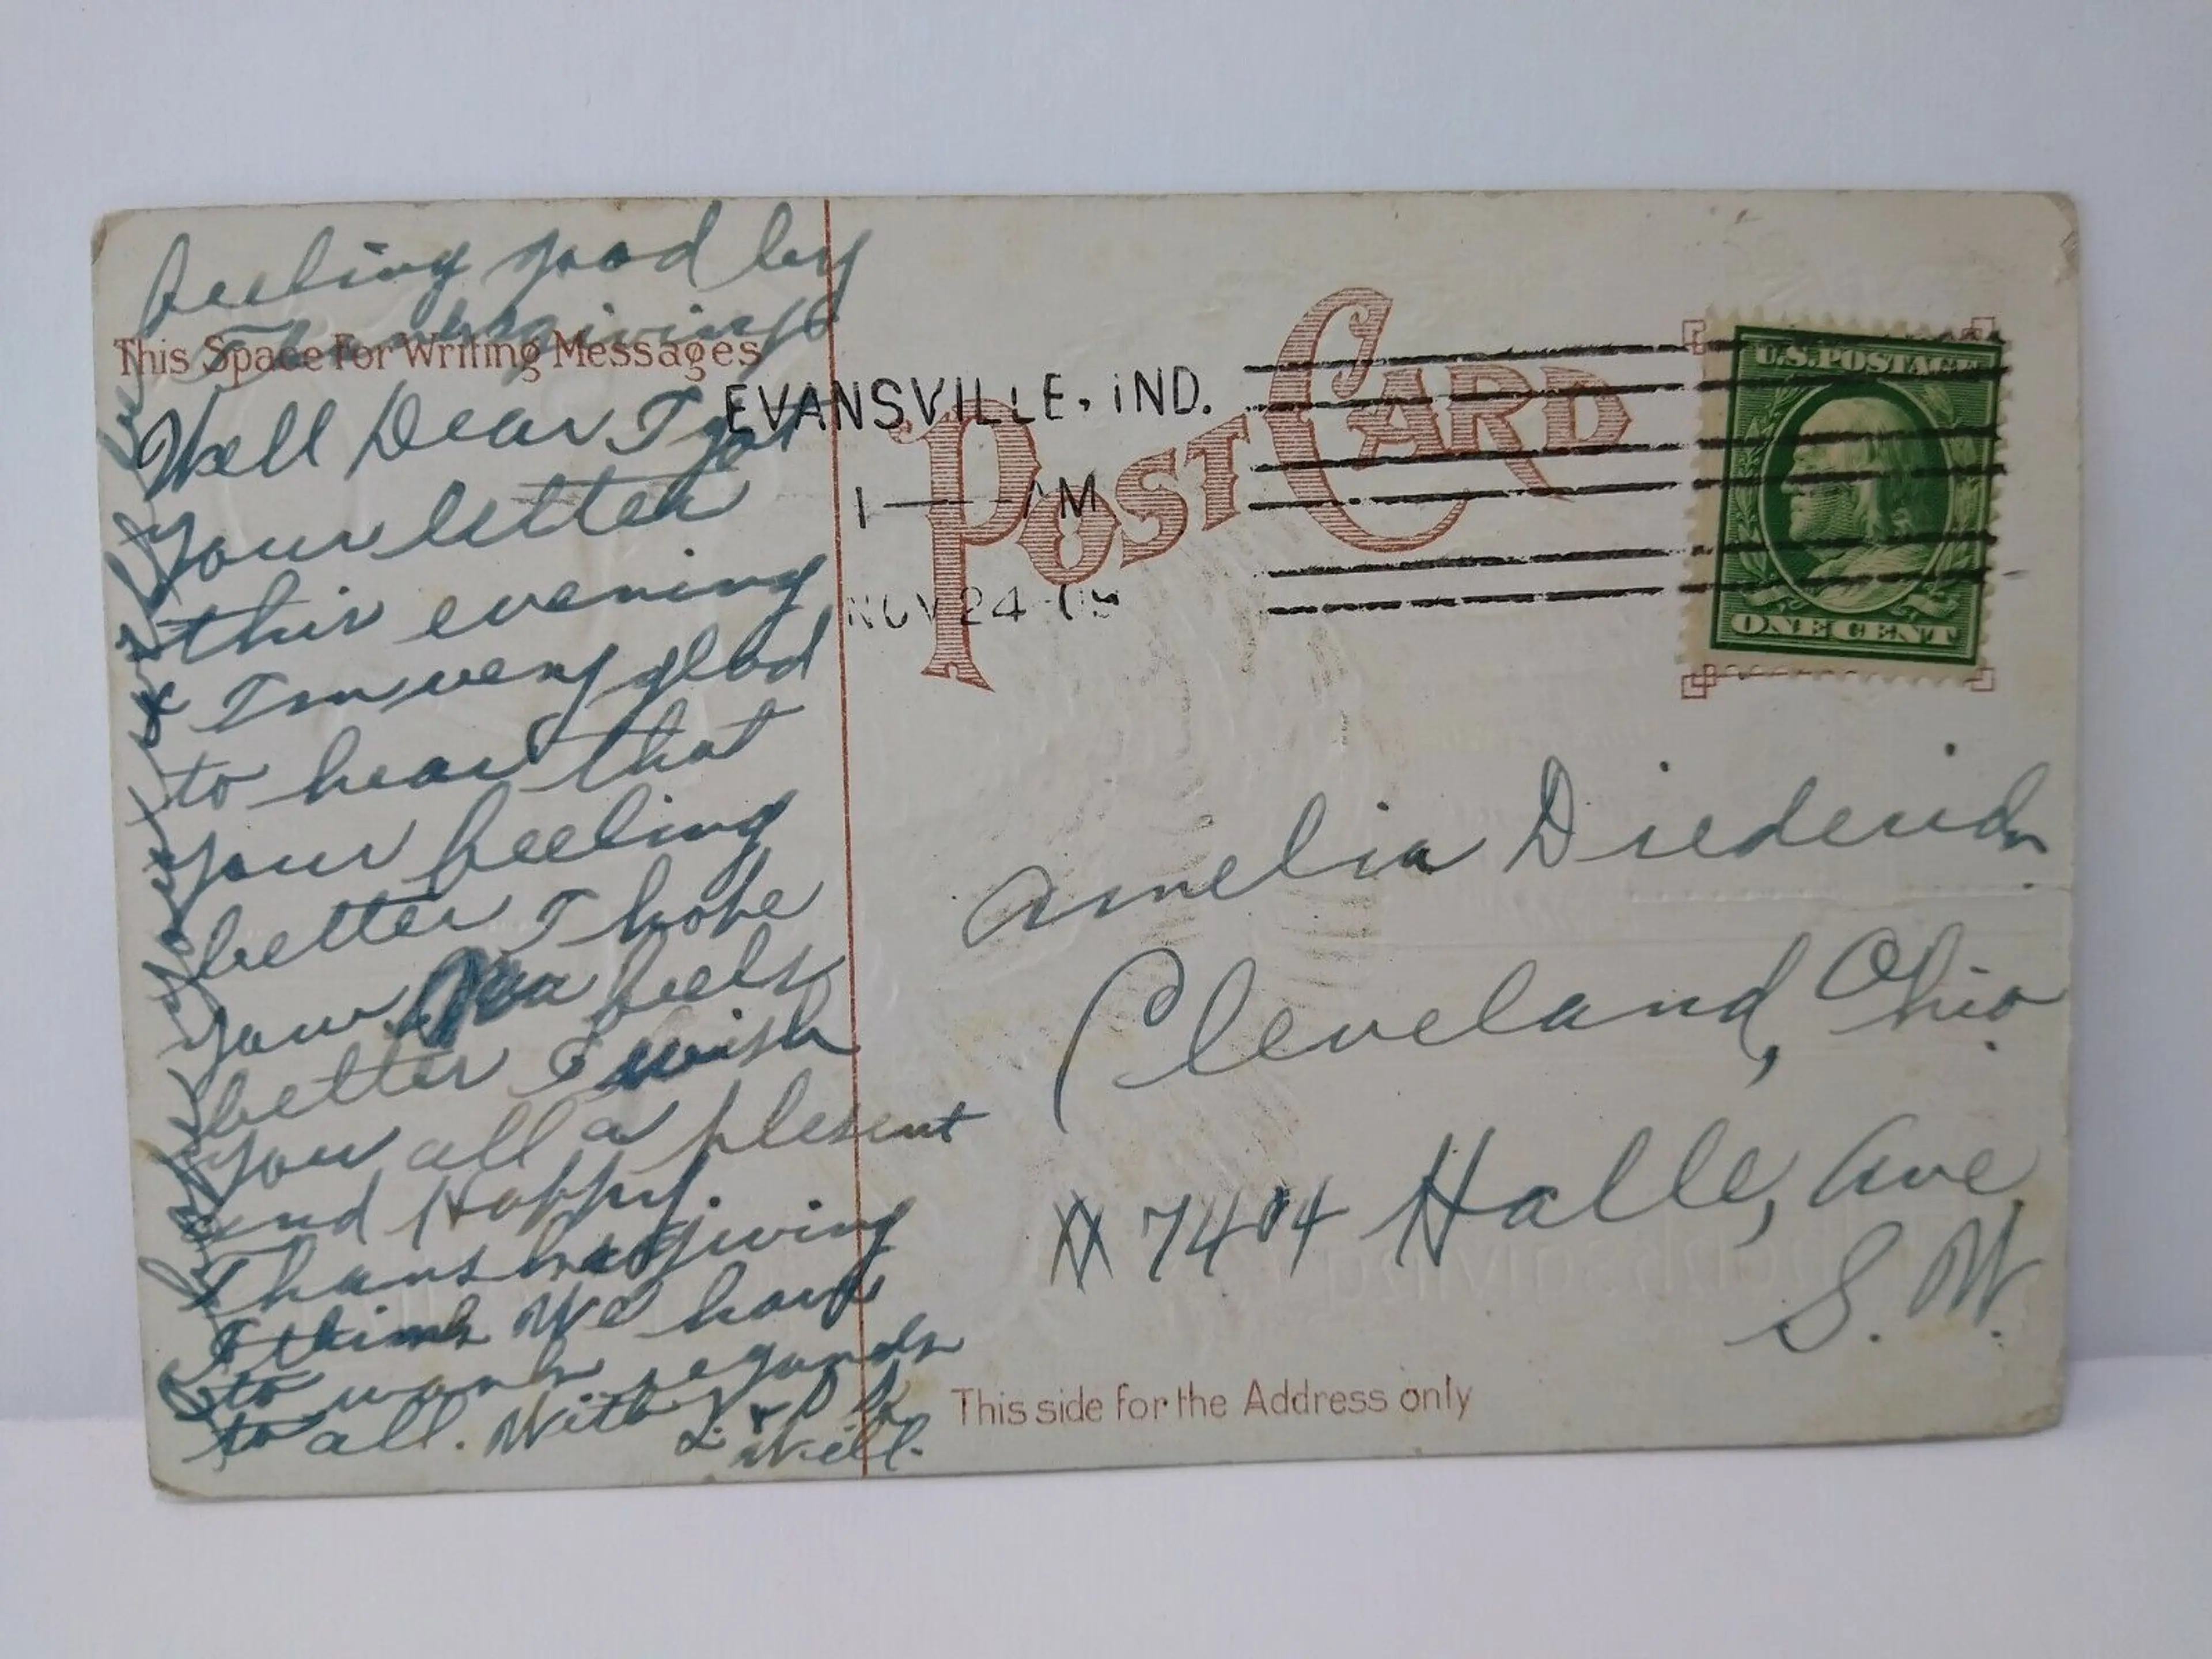 feeling good by
Thanksgiving
This Space For Writing Messages
Well Dear I got
your letter
this evening
& I'm very glad
to hear that
your feeling
better I hope
your Ma feels
better I wish
you all a plesent
and Happy.
Thanksgiving
I think We have
to work regards
to all. With L. &
Will.
EVANSVILLE, IND.
1 — AM
NOV 24 09
POST CARD
U.S. POSTAGE
ONE CENT
Amelia Diederich
Cleveland, Ohio.
# 7404 Halle, Ave
S. W.
This side for the Address only